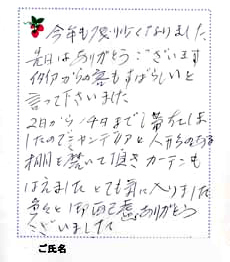 今年も残り少なくなりました
先日はありがとうございます
イタリアからの客もすばらしいと
言って下さいました
2日から14日まで
したのでキャンデリアと人形のある
棚を 頂きカーテンも
はえました とても気に入りました
色々と ありがとう
ございました
ご氏名